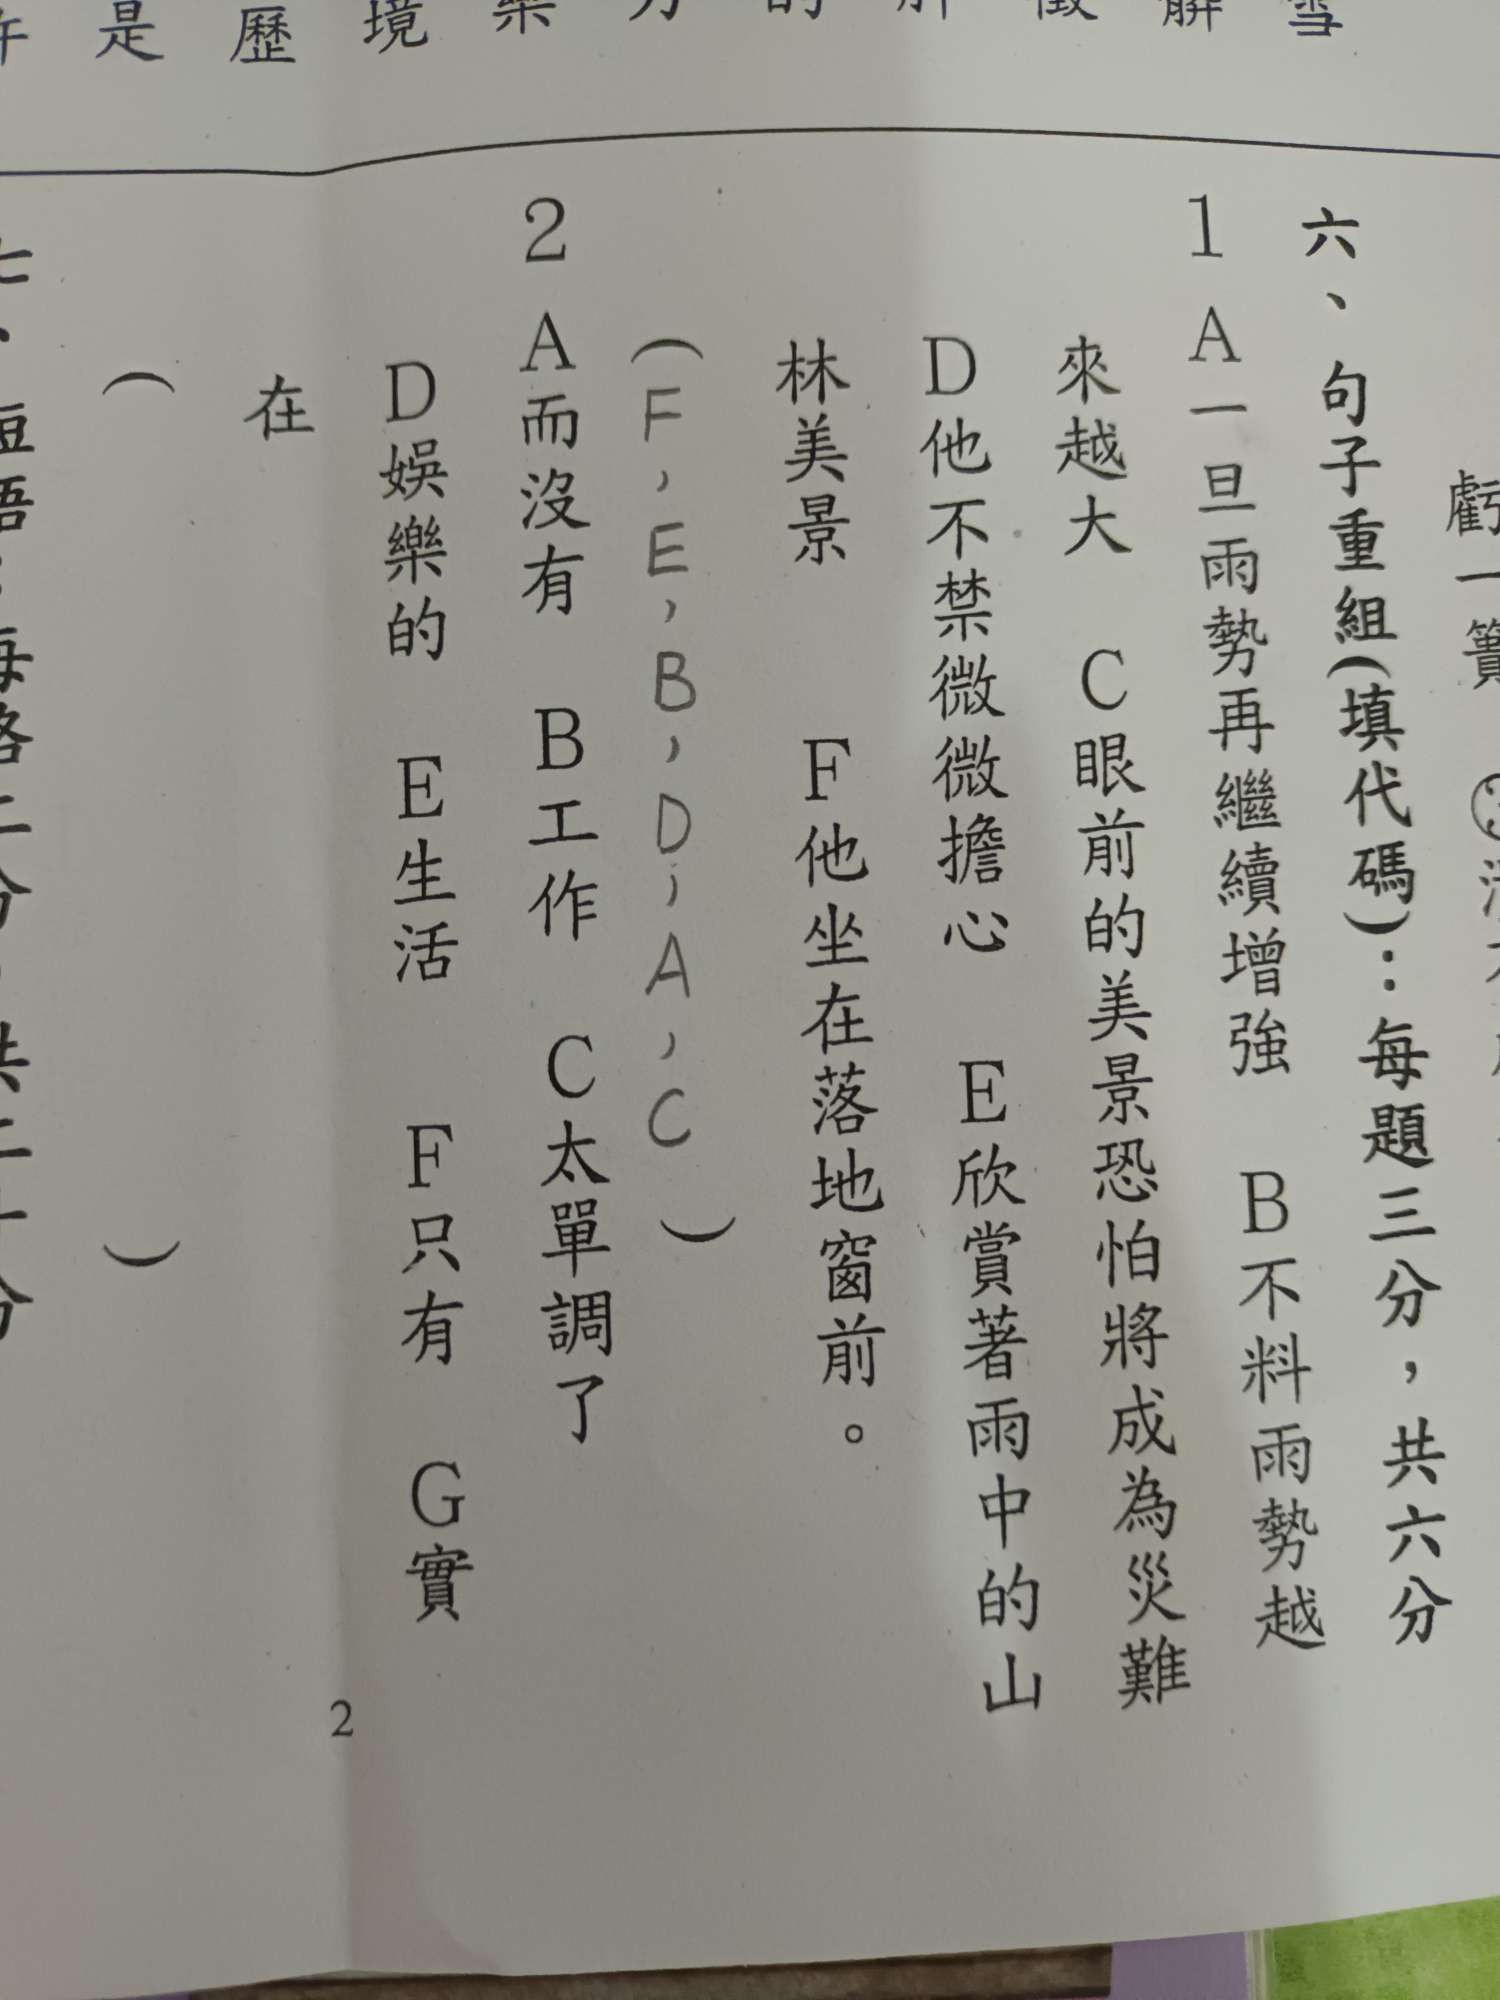 虧一簣
六、句子重組(填代碼)：每題三分，共六分
1 A一旦雨勢再繼續增強 B不料雨勢越
來越大 C眼前的美景恐怕將成為災難
D他不禁微微擔心 E欣賞著雨中的山
林美景 F他坐在落地窗前。
(F，E，B，D，A，C)
2 A而沒有 B工作 C太單調了
D娛樂的 E生活 F只有 G實
在
( )
2